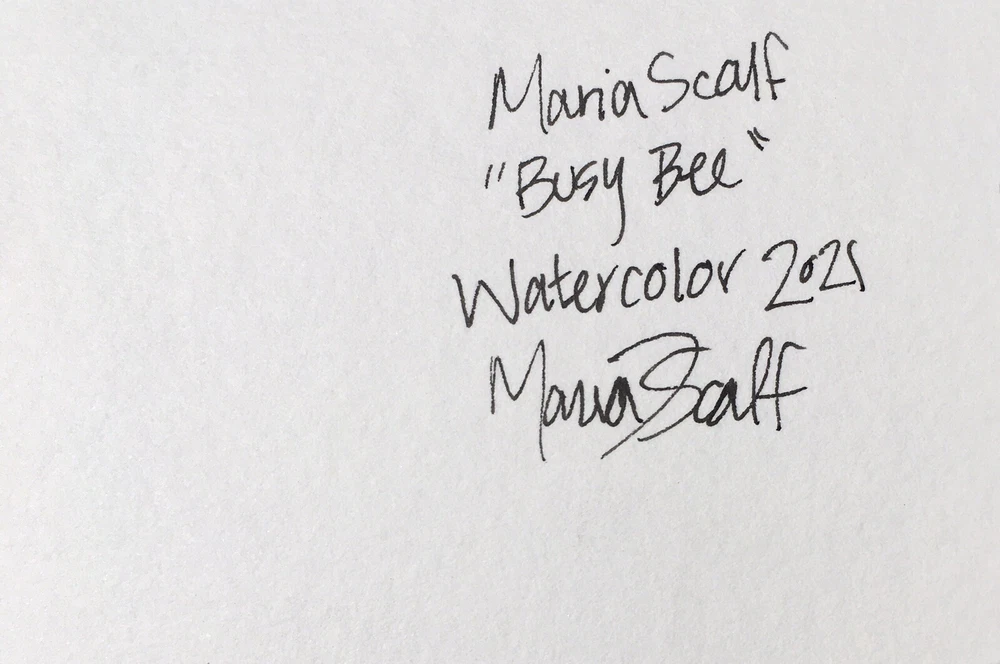 Maria Scalf
"Busy Bee"
Watercolor 2021
Maria Scalf